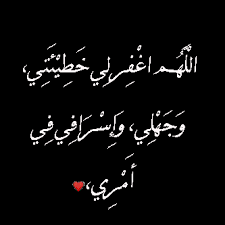 اللَّهُم اغْفِرلِي خَطِيْئَتِي،
وَجَهْلِي، وَإِسْرَافِي فِي
أَمْرِي،❤